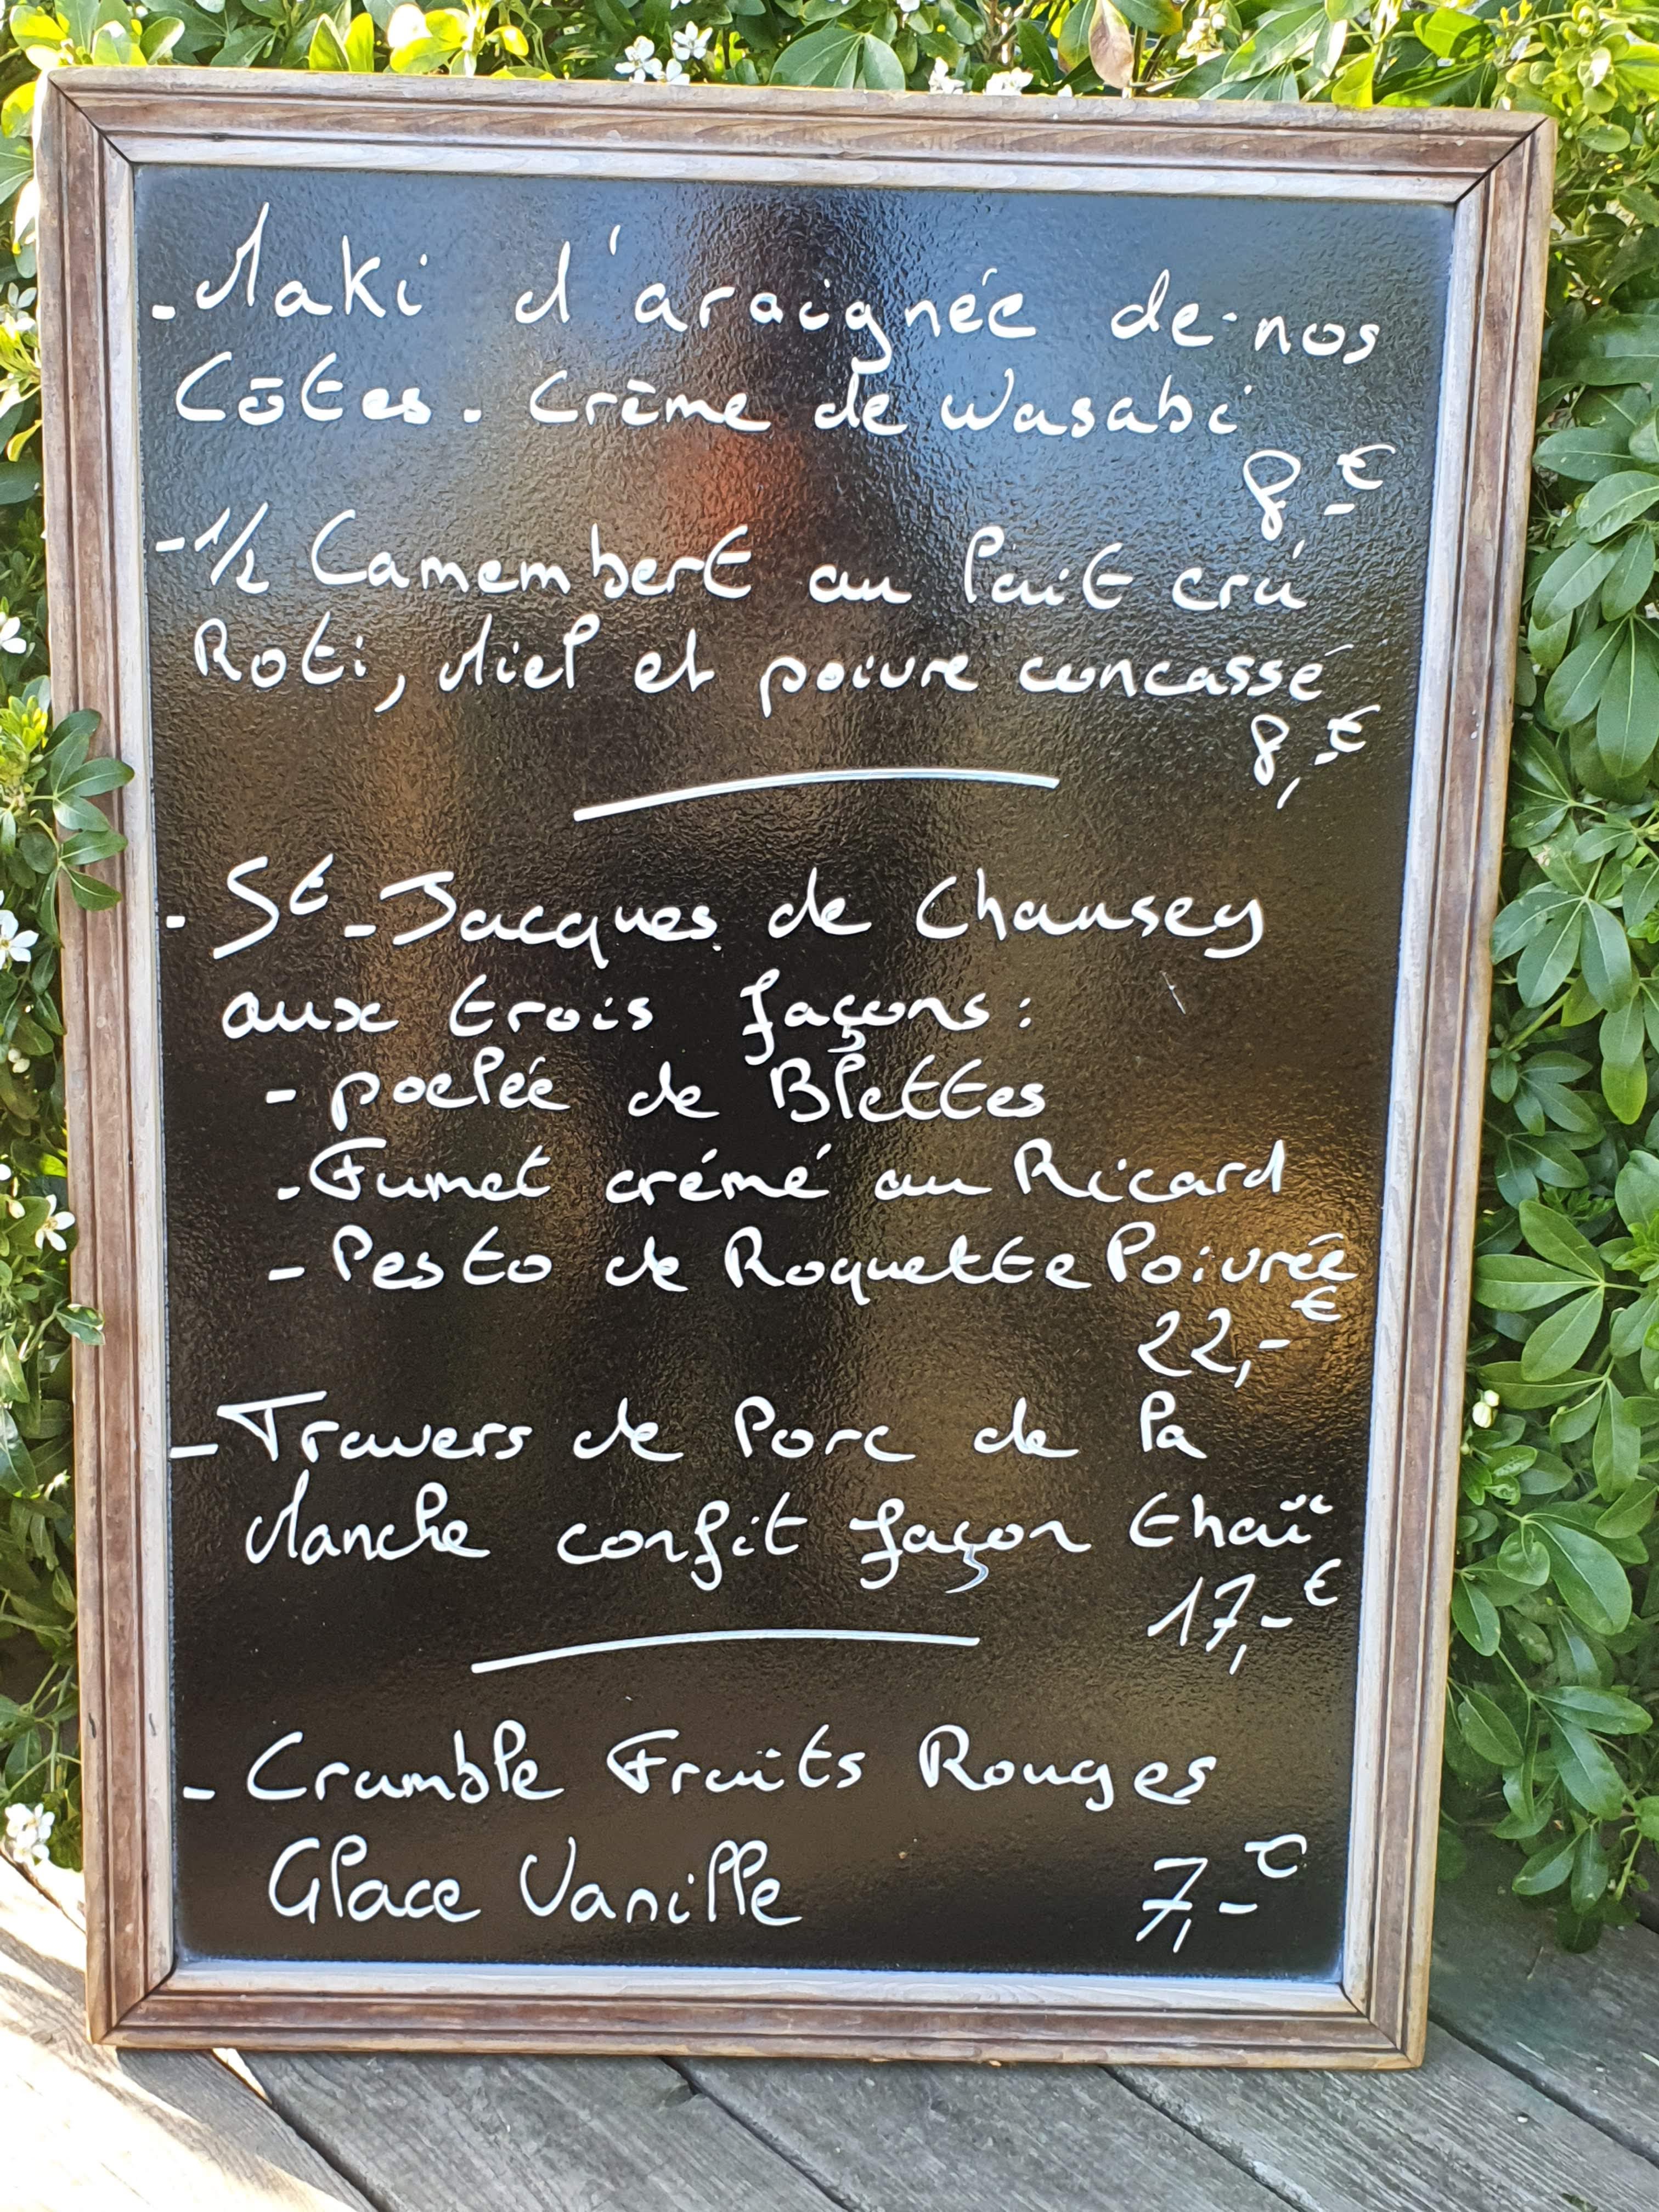 - Maki d'araignée de nos
Côtes. Crème de Wasabi
8,-€
- 1/2 Camembert au lait cru
Roti, Miel et poivre concassé
8,-€
- St-Jacques de Chausey
aux trois façons:
- poelée de Blettes
- Fumet crémé au Ricard
- Pesto de Roquette Poivrée
22,-€
- Travers de Porc de la
Manche confit façon thaï
17,-€
- Crumble Fruits Rouges
Glace Vanille 7,-€